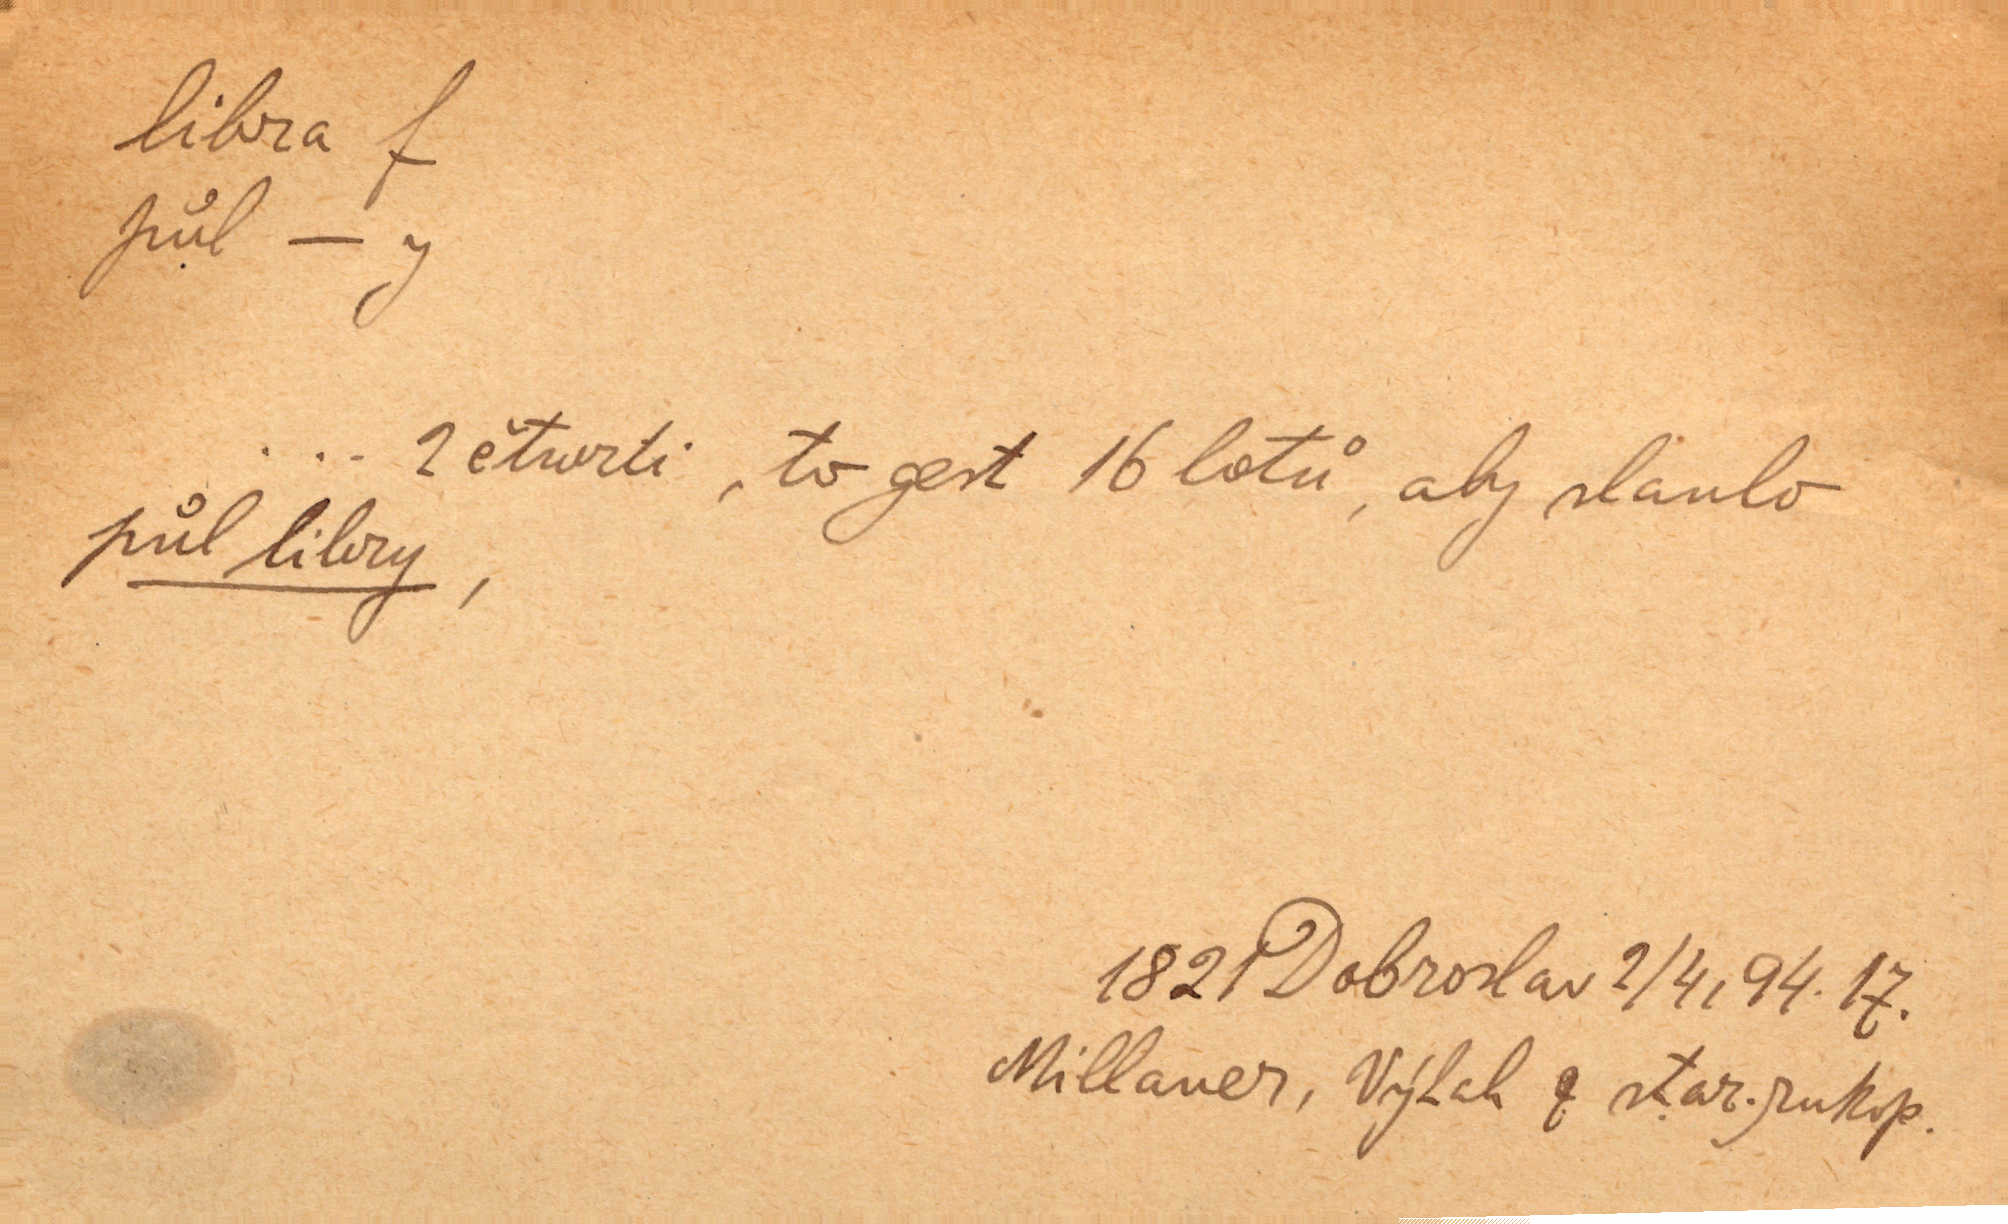 libra f
půl — y
... 2 čtwrti, to gest 16 lotů, aby stanlo
půl libry,
1821 Dobroslav 2/4, 94. 17.
Millauer, Výtah z star. rukop.